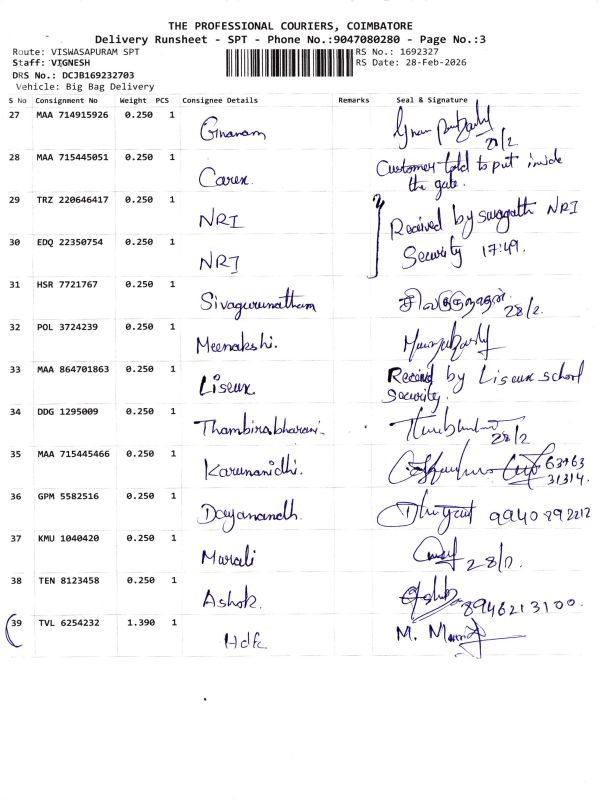 THE PROFESSIONAL COURIERS, COIMBATORE
Delivery Runsheet - SPT - Phone No.:9047080280 - Page No.:3
Route: VISWASAPURAM SPT
RS No.: 1692327
Staff: VIGNESH
RS Date: 28-Feb-2026
DRS No.: DCJB169232703
Vehicle: Big Bag Delivery
S No Consignment No Weight PCS Consignee Details Remarks Seal & Signature
27 MAA 714915926 0.250 1
Gnanam
28 MAA 715445051 0.250 1
Customer told to put inside
Carex.
the gate.
29 TRZ 220646417 0.250 1
NRI
Received by swagath NRI
30 EDQ 22350754 0.250 1
Security 17:49.
NRI
31 HSR 7721767 0.250 1
Sivagurunatham
சிவகுருநாதன்
28/2.
32 POL 3724239 0.250 1
Meenakshi.
33 MAA 864701863 0.250 1
Received by Liseux school
Liseux
Security.
34 DDG 1295009 0.250 1
Thambirabharani.
28/2
35 MAA 715445466 0.250 1
Karunanidhi.
63963
31314.
36 GPM 5582516 0.250 1
Dayanandh.
9940892212
37 KMU 1040420 0.250 1
Murali
28/2.
38 TEN 8123458 0.250 1
Ashok.
8946213100.
39 TVL 6254232 1.390 1
Hdfc
M.